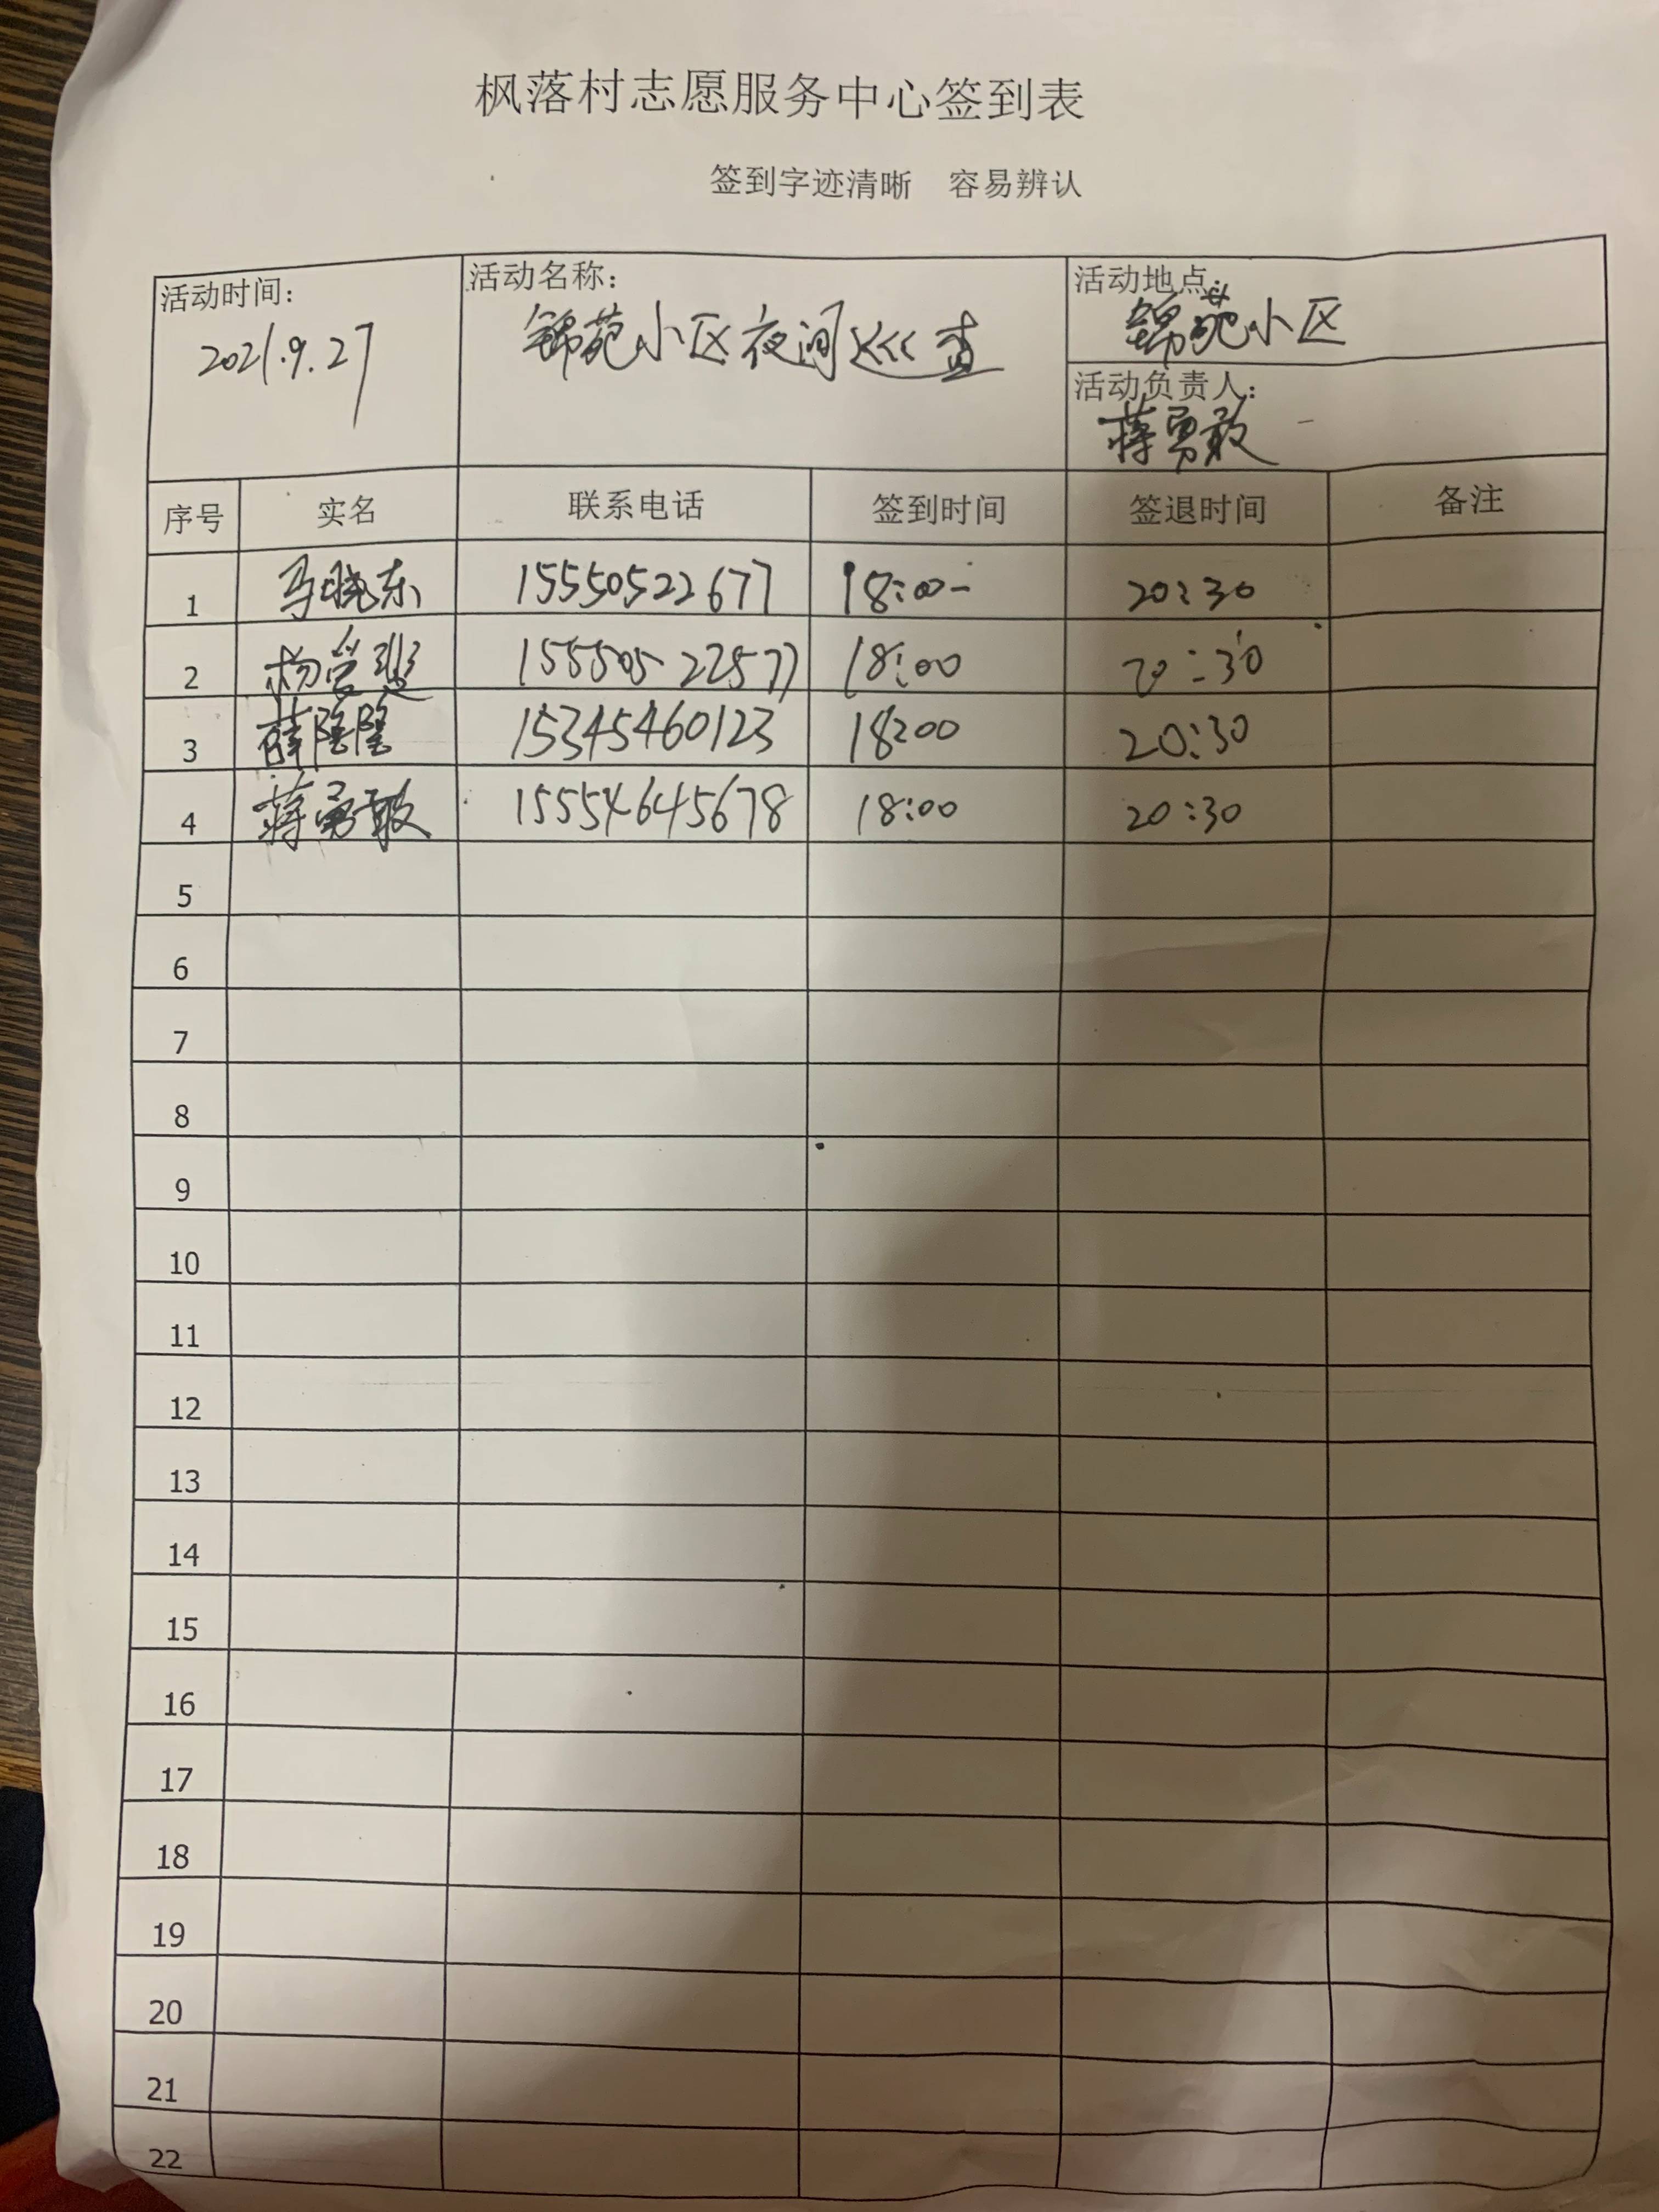 枫落村志愿服务中心签到表
签到字迹清晰 容易辨认
活动时间: 活动名称: 活动地点:
2021.9.27 锦苑小区夜间巡查 锦苑小区
活动负责人:
蒋勇敢
序号 实名 联系电话 签到时间 签退时间 备注
1 马晓东 15550522677 18:00 20:30
2 杨 15550522577 18:00 20:30
3 薛隆隆 15345460123 18:00 20:30
4 蒋勇敢 15554645678 18:00 20:30
5
6
7
8
9
10
11
12
13
14
15
16
17
18
19
20
21
22